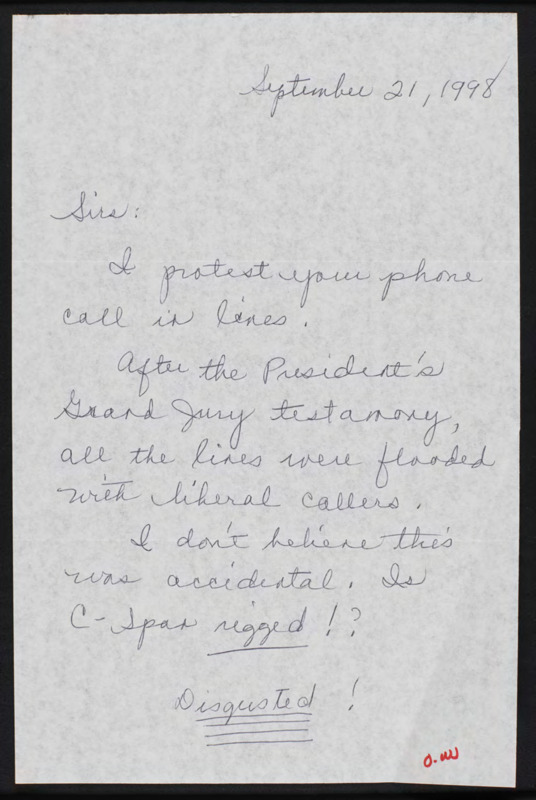 September 21, 1998
Sirs:
I protest your phone
call in lines.
After the President's
Grand Jury testamony,
all the lines were flooded
with liberal callers.
I don't believe this
was accidental. Is
C-Span rigged!?
Disgusted!